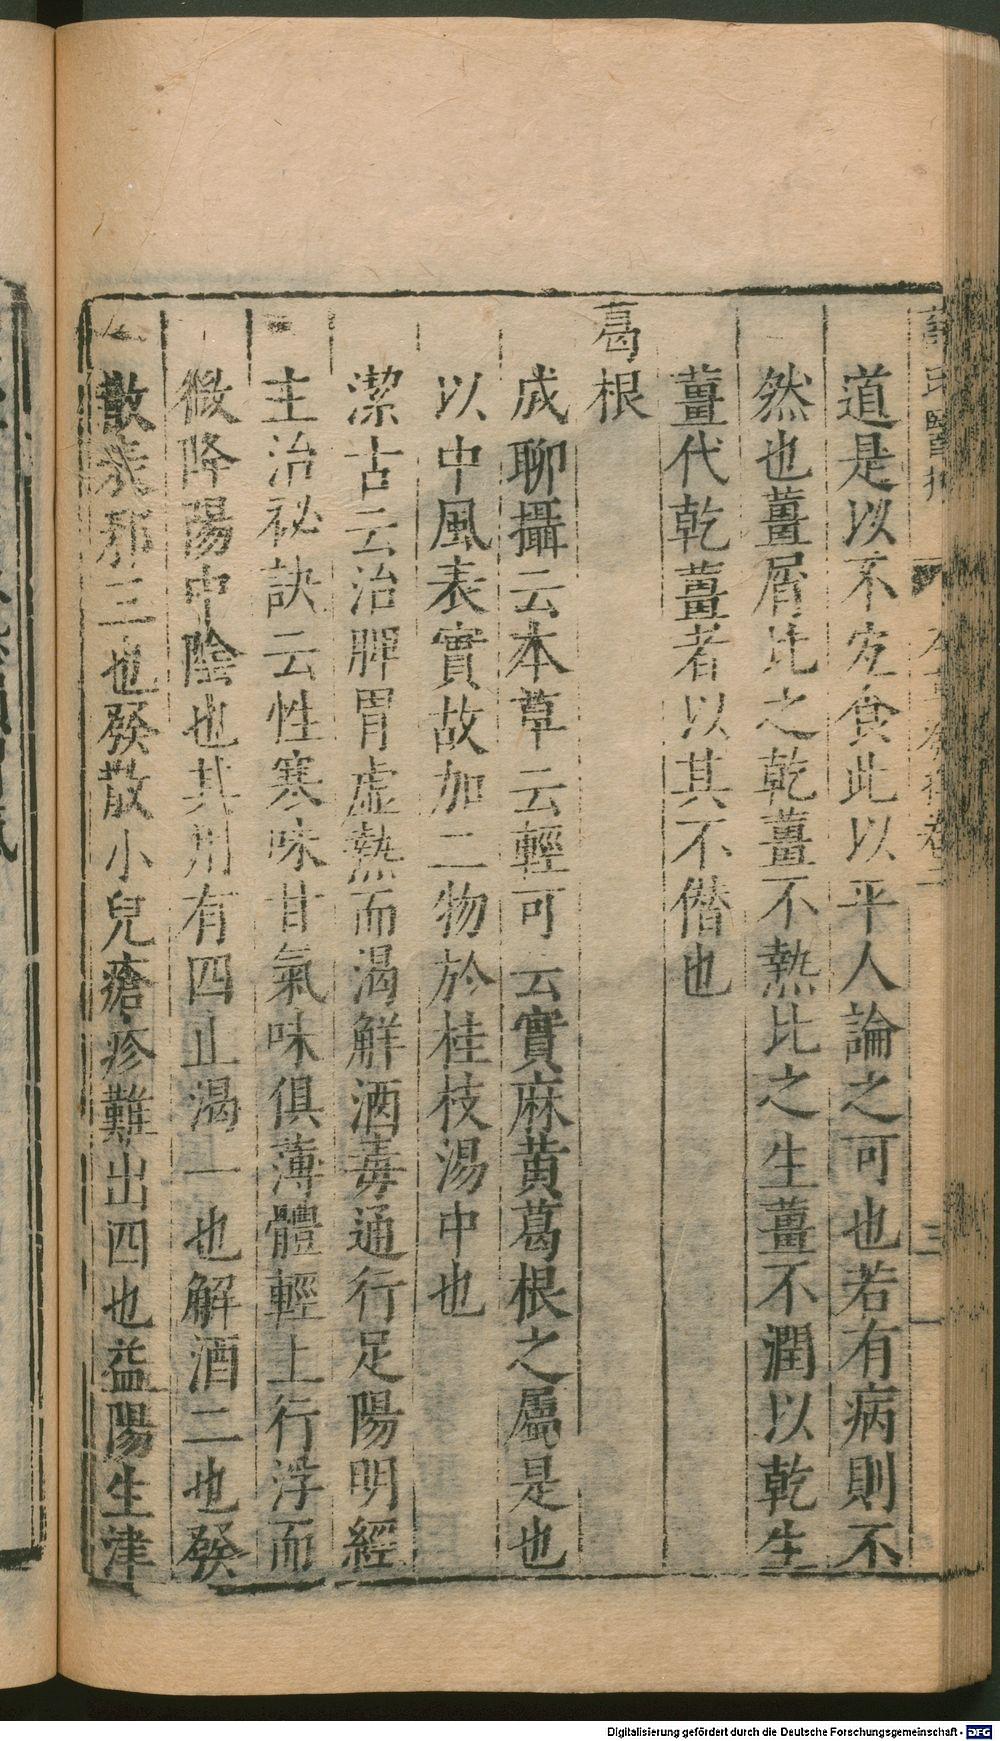 道是以不宐食此以平人論之可也若有病則不
然也薑屑比之乾薑不熱比之生薑不潤以乾生
薑代乾薑者以其不僭也
葛根
成聊攝云本草云輕可云實麻黄葛根之屬是也
以中風表實故加二物於桂枝湯中也
潔古云治脾胃虛熱而渴觧酒毒通行足陽明經
主治祕訣云性寒味甘氣味俱薄體輕上行浮而
微降陽中陰也其用有四止渴一也解酒二也發
散表邪三也發散小兒瘡疹難出四也益陽生津
Digitalisierung gefördert durch die Deutsche Forschungsgemeinschaft - DFG